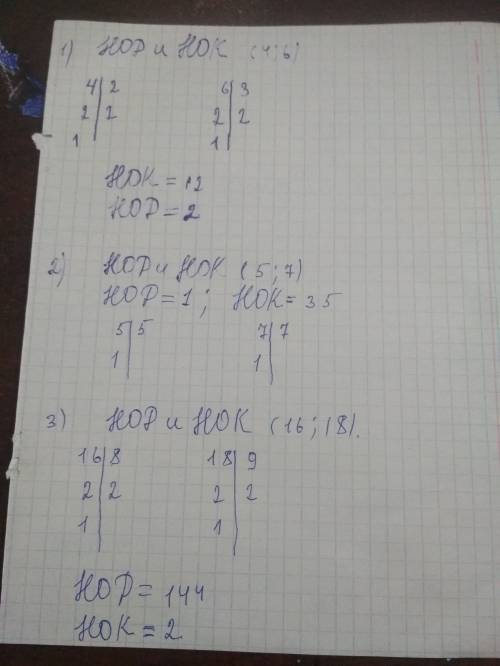 1) НОД и НОК (4;6)
4|2 6|3
2|2 2|2
1| 1|
НОК = 12
НОД = 2
2) НОД и НОК (5;7)
НОД = 1; НОК = 35
5|5 7|7
1| 1|
3) НОД и НОК (16;18).
16|8 18|9
2|2 2|2
1| 1|
НОД = 144
НОК = 2